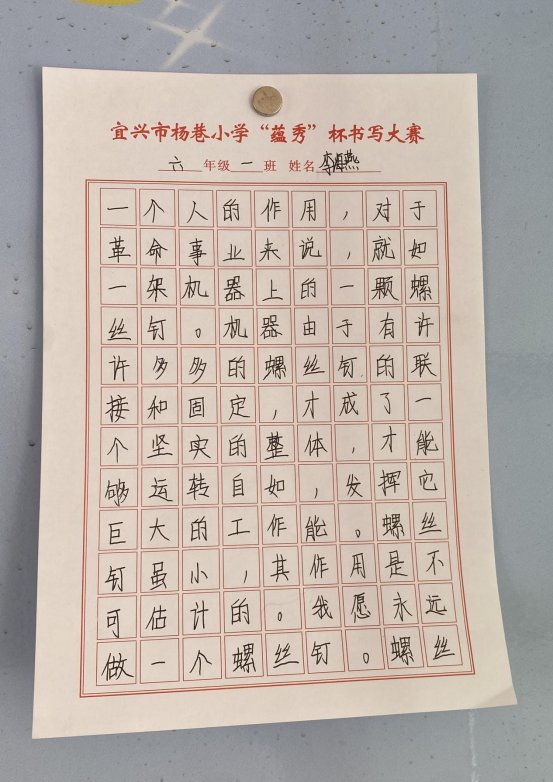 宜兴市杨巷小学“蕴秀”杯书写大赛
六年级一班 姓名李海燕
一个人的作用，对于
革命事业来说，就如
一架机器上的一颗螺
丝钉。机器由于有许
许多多的螺丝钉的联
接和固定，才成了一
个坚实的整体，才能
够运转自如，发挥它
巨大的工作能。螺丝
钉虽小，其作用是不
可估计的。我愿永远
做一个螺丝钉。螺丝